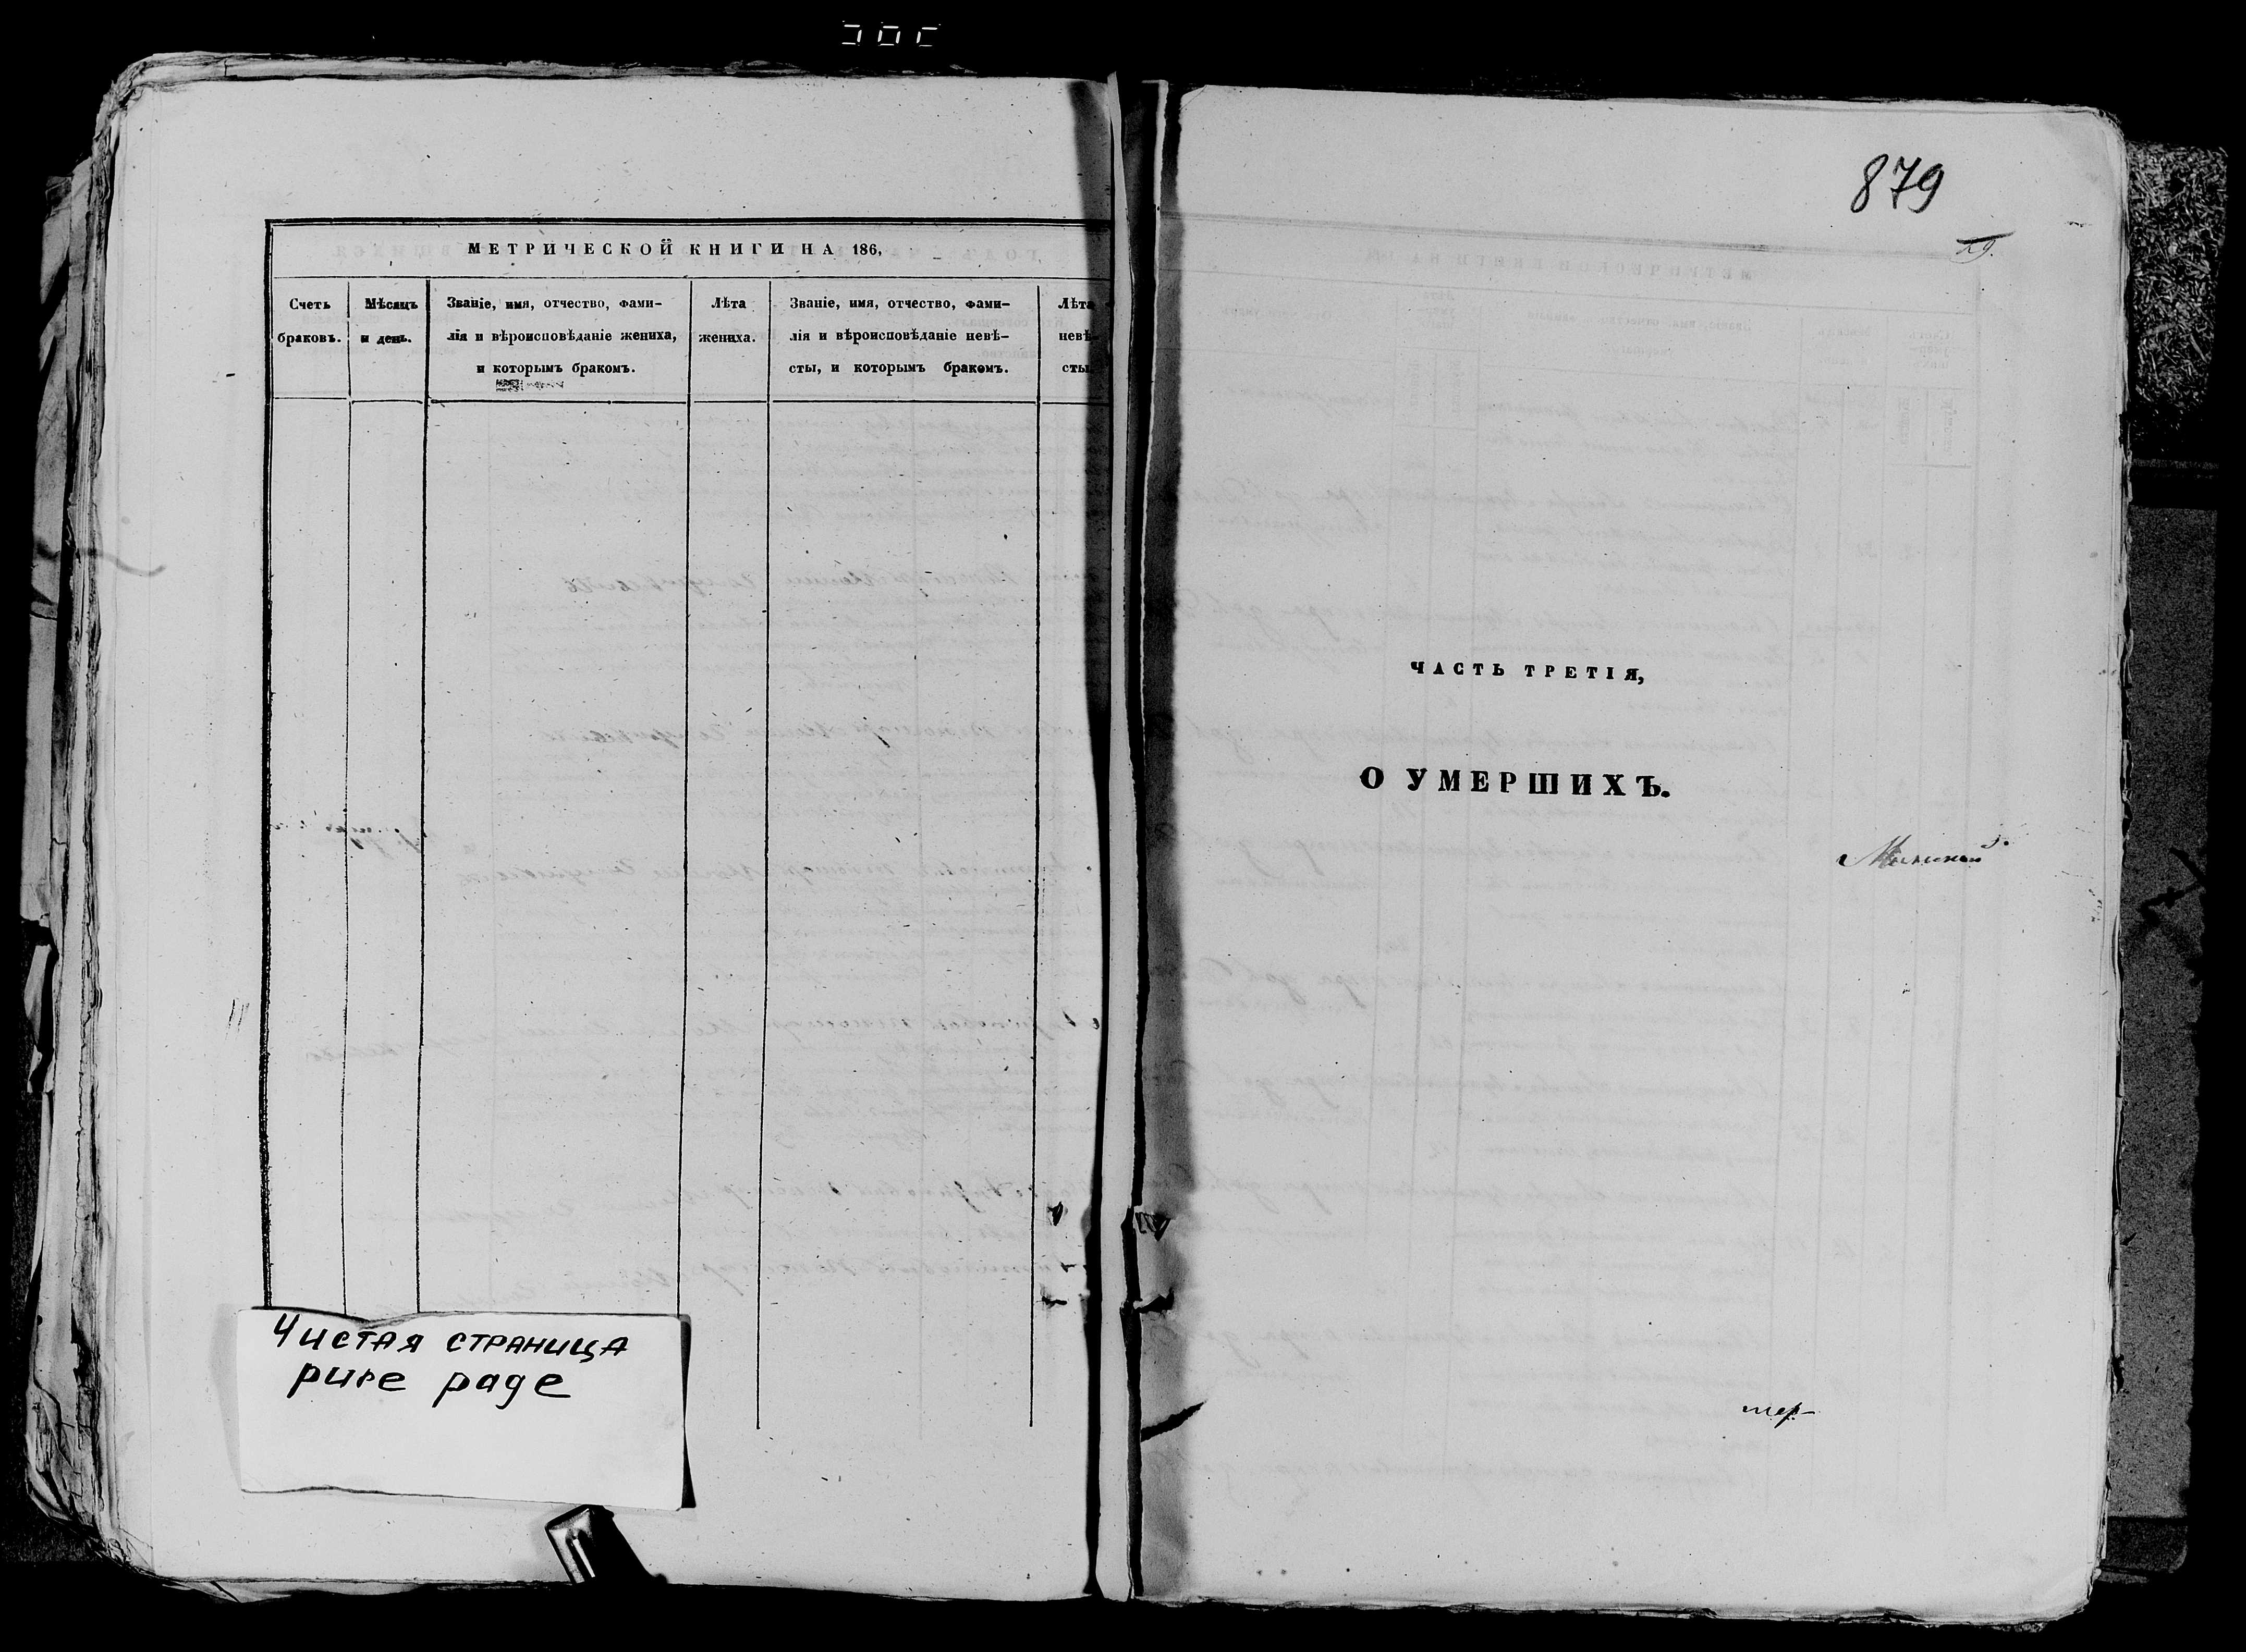 МЕТРИЧЕСКОЙ КНИГИ НА 186,
Счетъ
браковъ.
Мѣсяцъ
и день.
Званіе, имя, отчество, фами-
лія и вѣроисповѣданіе жениха,
и которымъ бракомъ.
Лѣта
жениха.
Званіе, имя, отчество, фами-
лія и вѣроисповѣданіе невѣ-
сты, и которымъ бракомъ.
Лѣта
невѣ-
сты
Чистая страница
pure page
879
29.
ЧАСТЬ ТРЕТІЯ,
О УМЕРШИХЪ.